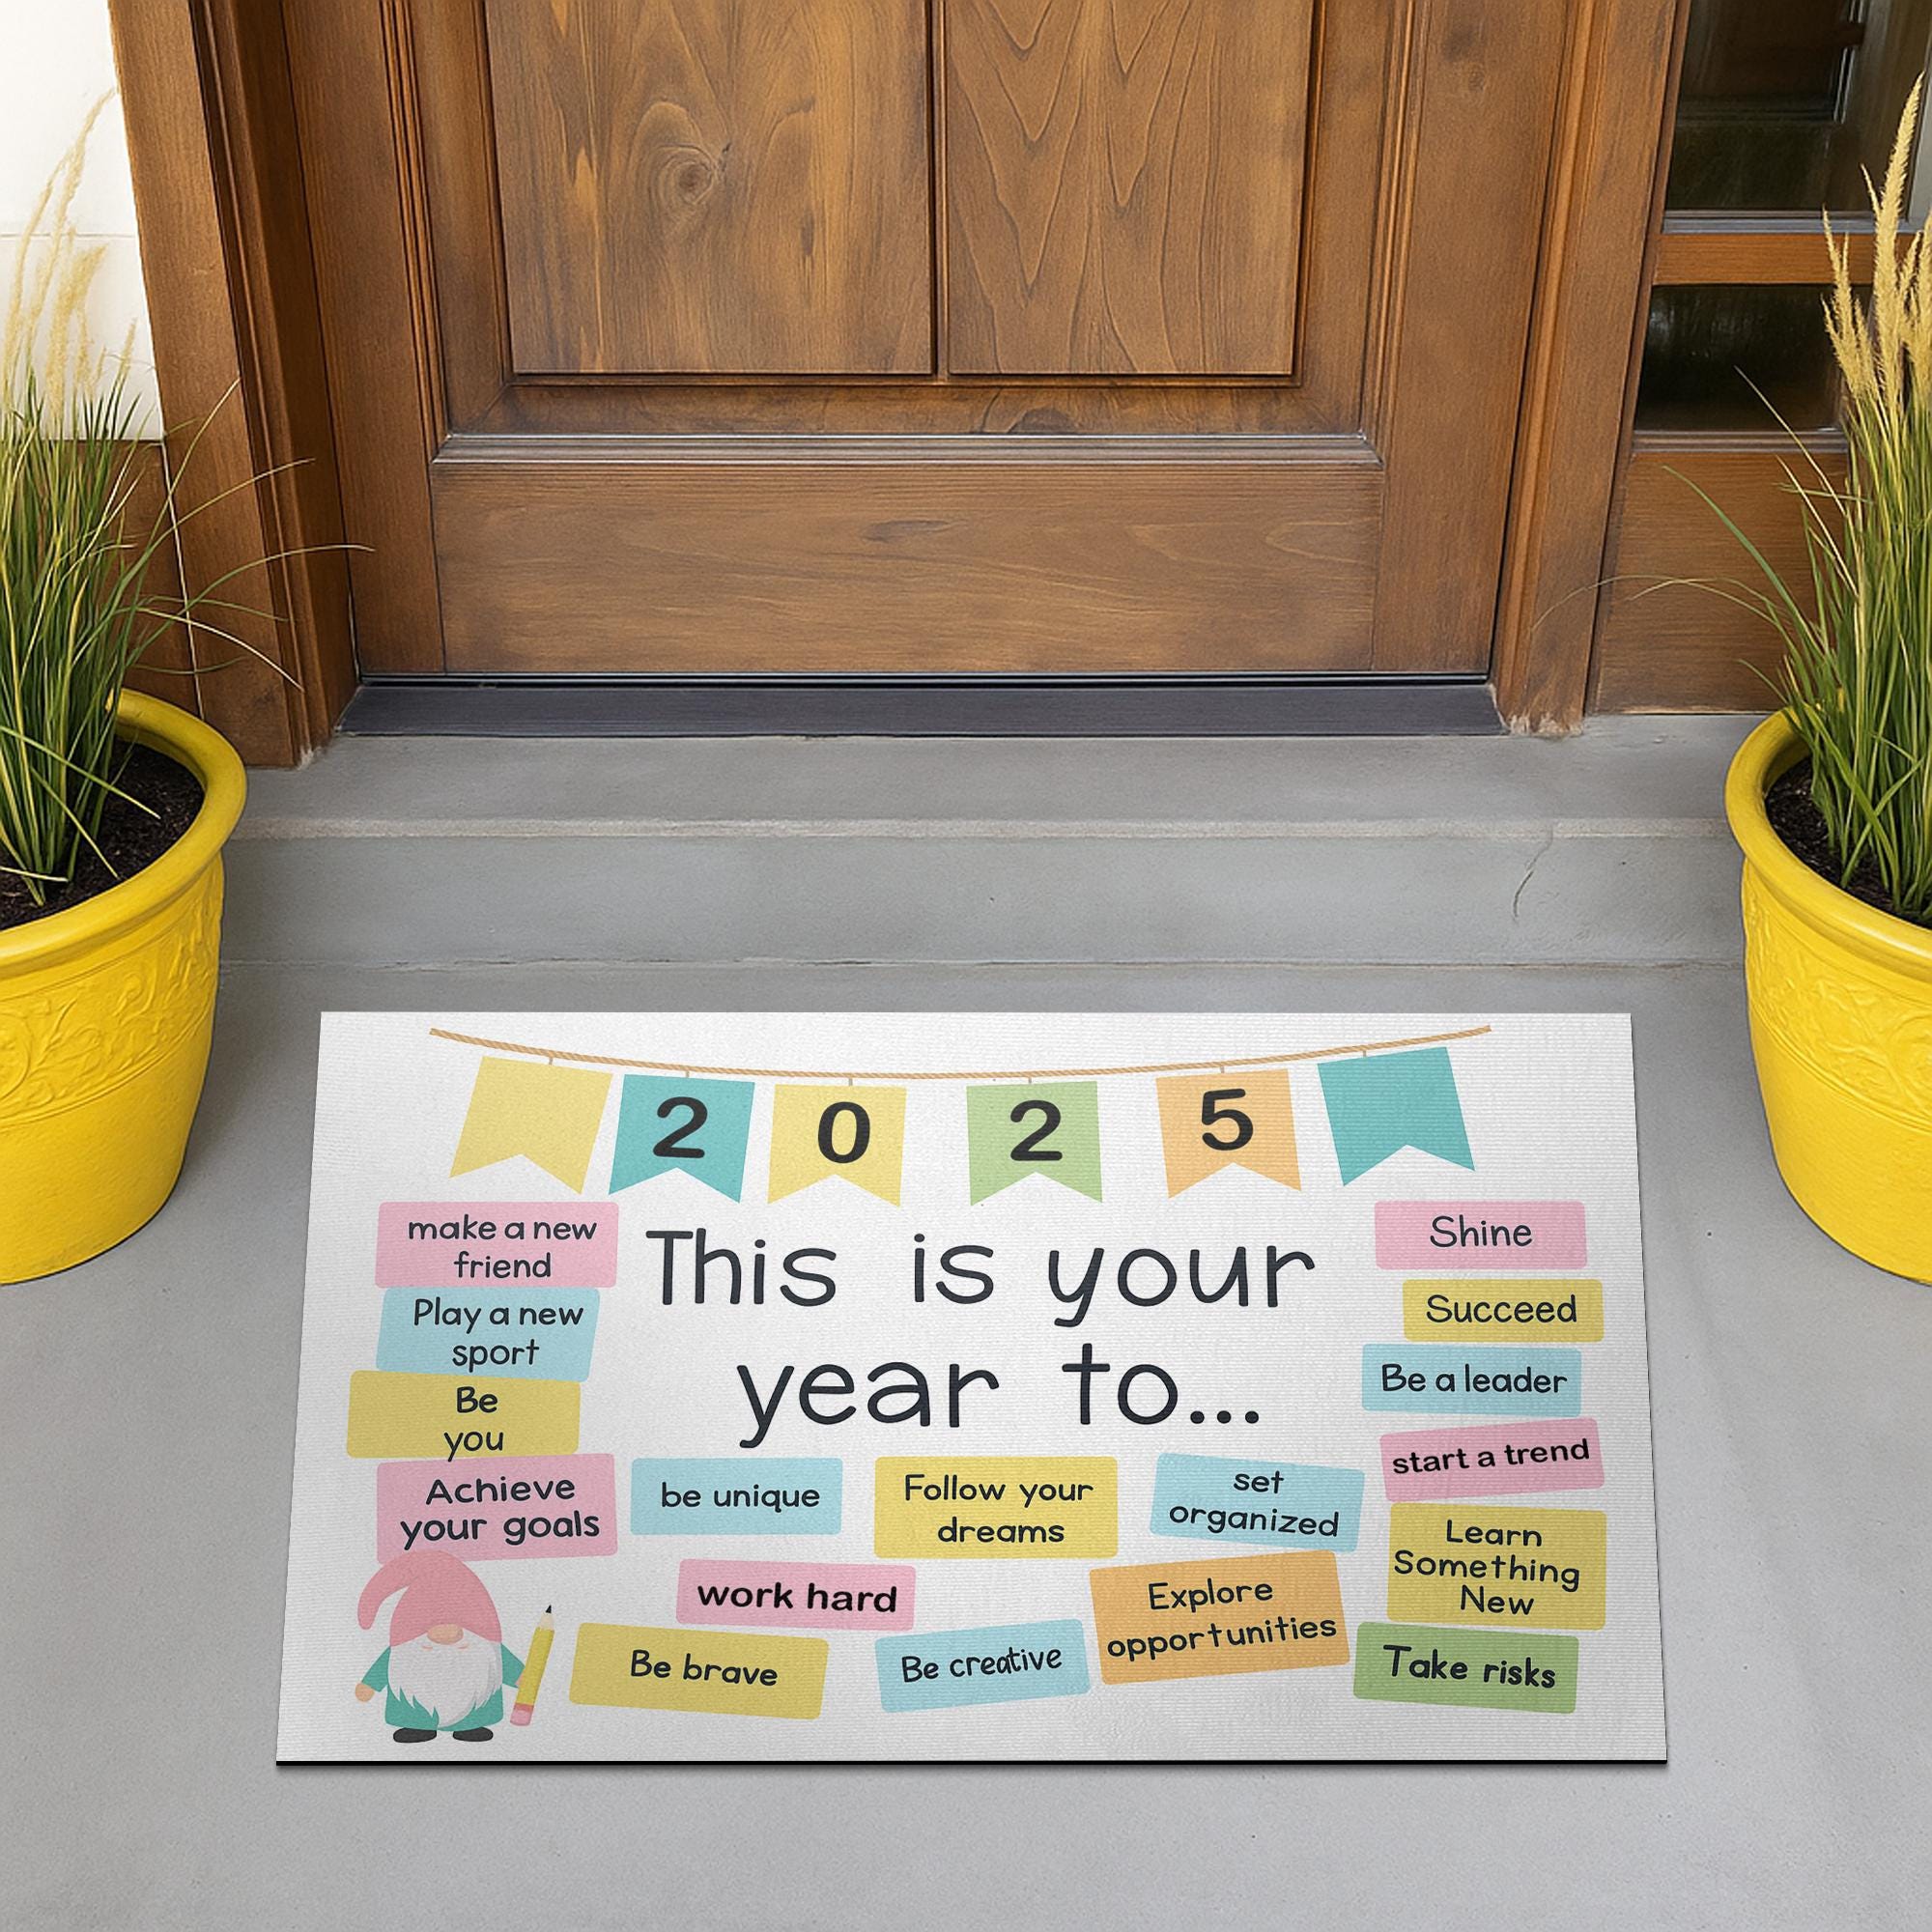 2 0 2 5
This is your
year to...
make a new
friend
Play a new
sport
Be
you
Achieve
your goals
be unique
Follow your
dreams
set
organized
Shine
Succeed
Be a leader
start a trend
Learn
Something
New
work hard
Explore
opportunities
Be brave
Be creative
Take risks